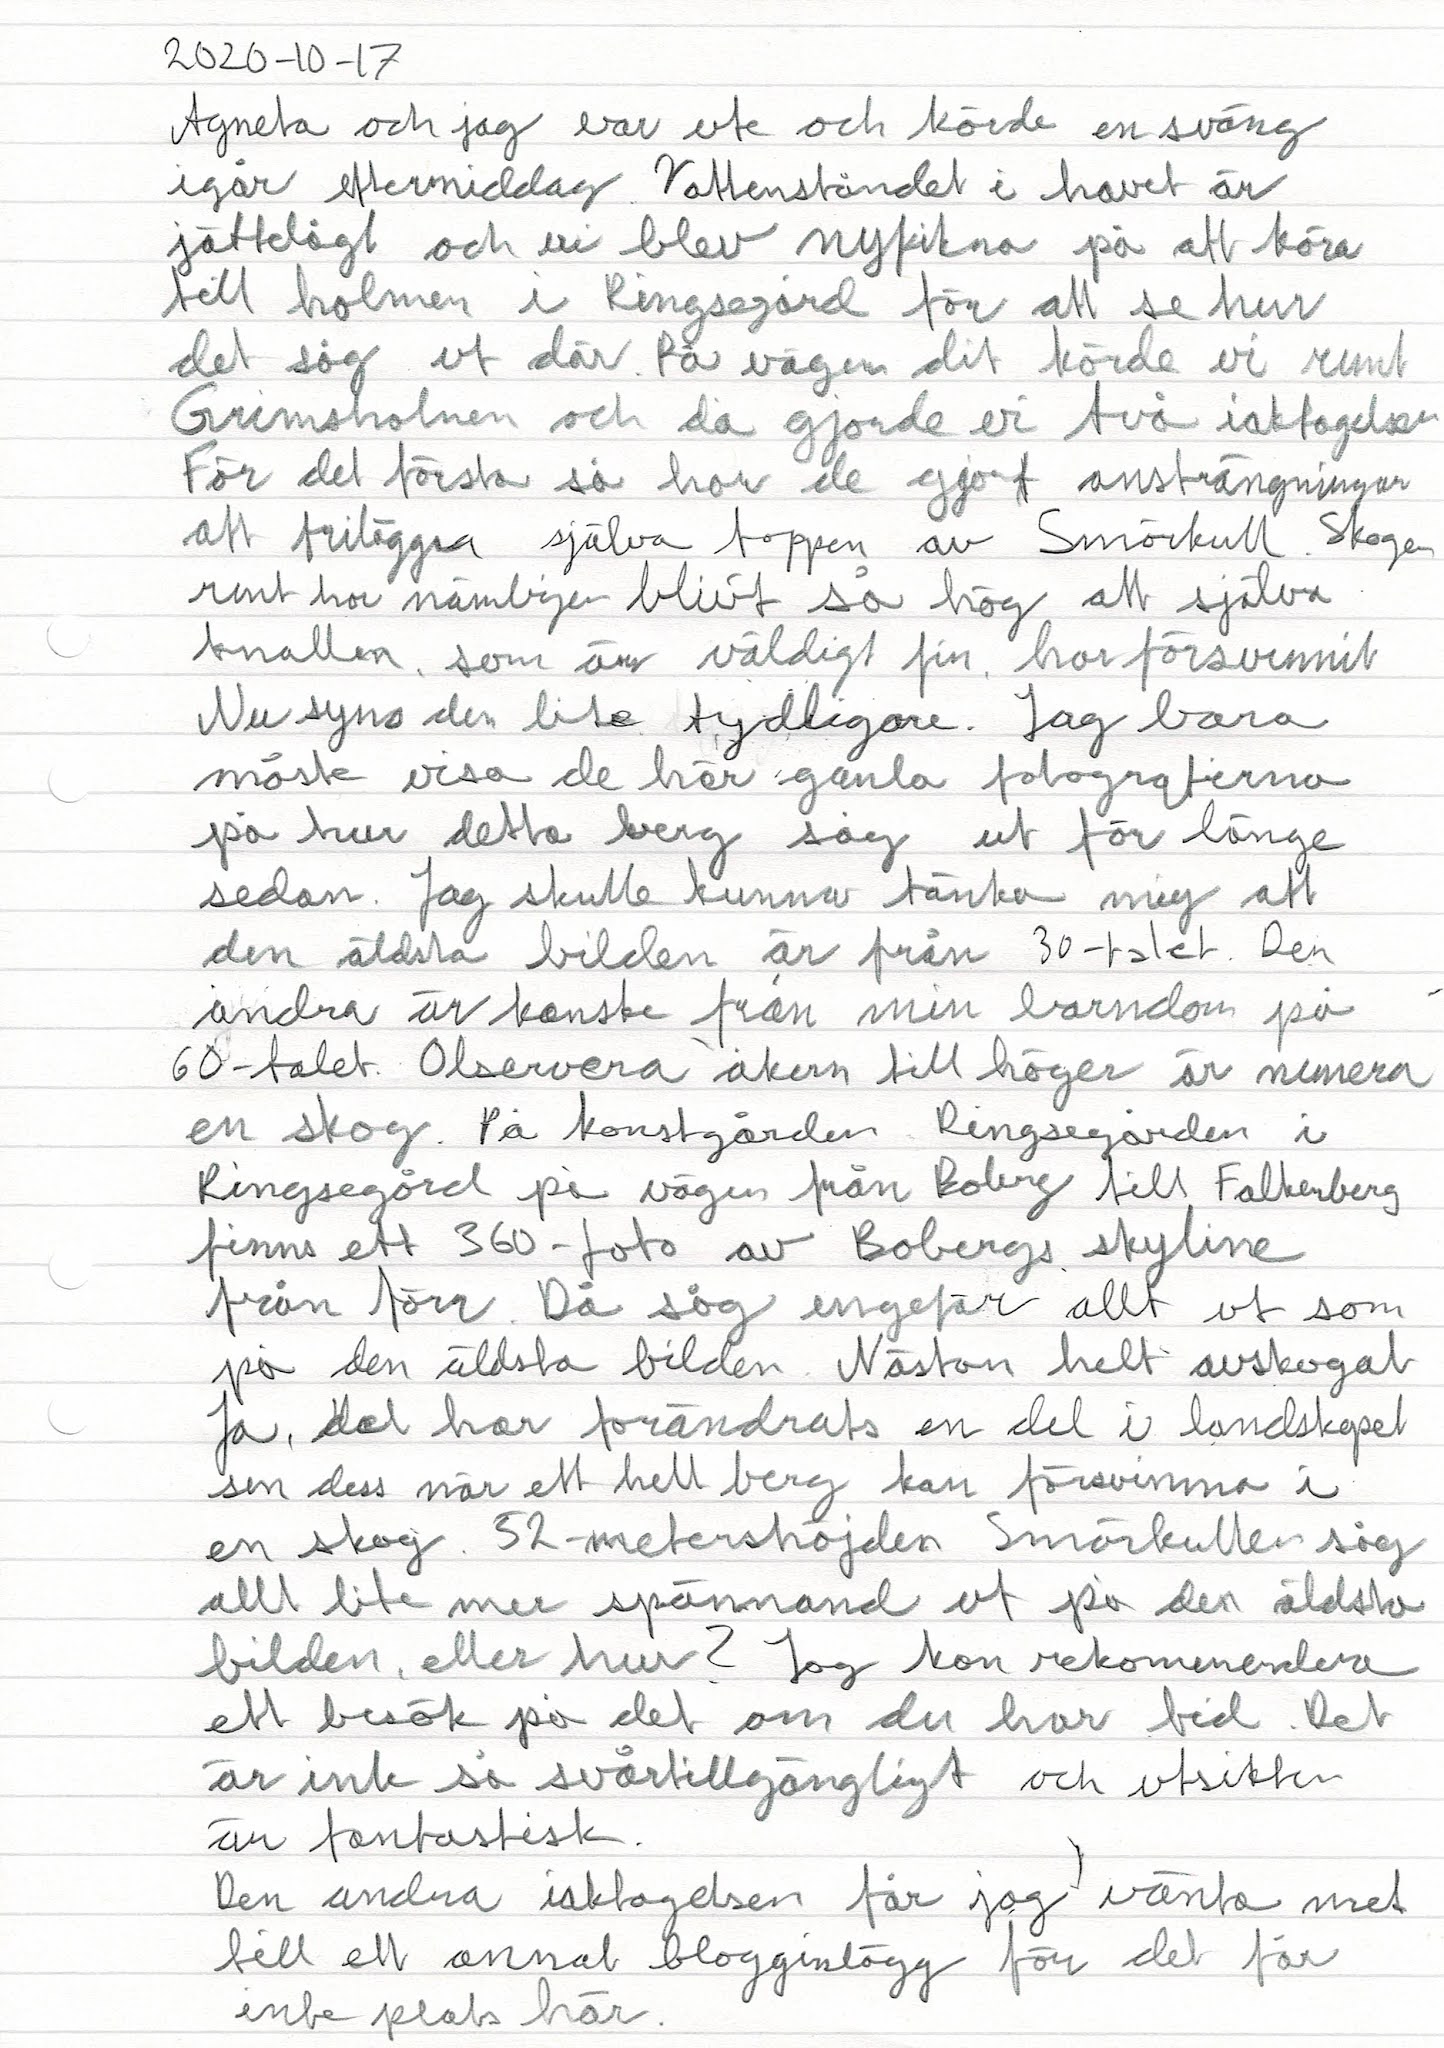 2020-10-17
Agneta och jag var ute och körde en sväng
igår eftermiddag. Vattenståndet i havet är
jättelågt och vi blev nyfikna på att köra
till holmen i Ringsegård för att se hur
det såg ut där. På vägen dit körde vi runt
Grimsholmen och då gjorde vi två iakttagelser
För det första så har de gjort ansträngningar
att frilägga själva toppen av Smörkull. Skogen
runt har nämligen blivit så hög att själva
knallen, som är väldigt fin, har försvunnit
Nu syns den lite tydligare. Jag bara
måste visa de här gamla fotografierna
på hur detta berg såg ut för länge
sedan. Jag skulle kunna tänka mig att
den äldsta bilden är från 30-talet. Den
andra är kanske från min barndom på
60-talet. Observera åkern till höger är numera
en skog. På konstgården Ringsegården i
Ringsegård på vägen från Boberg till Falkenberg
finns ett 360-foto av Bobergs skyline
från förr. Då såg ungefär allt ut som
på den äldsta bilden. Nästan helt avskogat
Ja, det har förändrats en del i landskapet
sen dess när ett helt berg kan försvinna i
en skog. 52-metershöjden Smörkullen såg
allt lite mer spännand ut på den äldsta
bilden, eller hur? Jag kan rekommendera
ett besök på det om du har tid. Det
är inte så svårtillgängligt och utsikten
är fantastisk.
Den andra iakttagelsen får jag vänta med
till ett annat blogginlägg för det får
inte plats här.